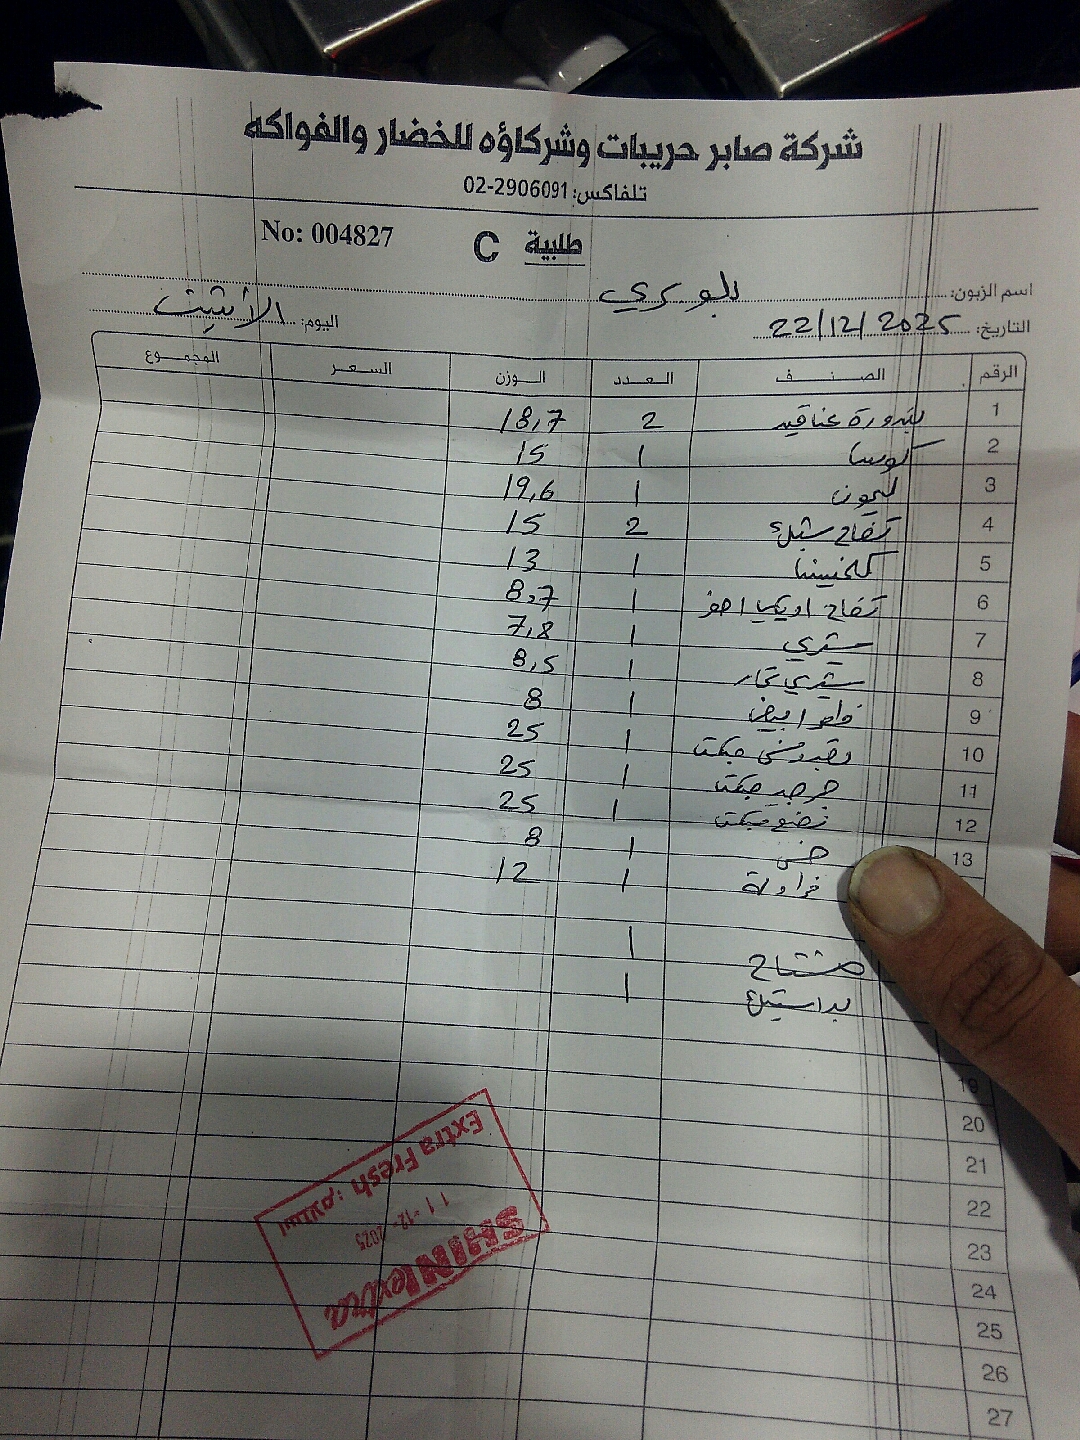 شركة صابر حريبات وشركاؤه للخضار والفواكه
تلفاكس: 02-2906091
No: 004827 طلبية C
اسم الزبون:
اليوم: الأثنين التاريخ: 22/12/2025
الرقم الصنف العدد الوزن السعر المجموع
1 بندورة عناقيد 2 18,7
2 كوسا 1 15
3 ليمون 1 19,6
4 تفاح 2 15
5 1 13
6 تفاح 1 8,7
7 1 7,8
8 1 8,5
9 ابيض 1 8
10 بقدونس 1 25
11 جرجير 1 25
12 نعنع 1 25
13 خس 1 8
فراولة 1 12
مشتاح 1
1
19
20
21
22
23
24
25
26
27
SHINI extra
11-12-2025
Extra Fresh : استلام